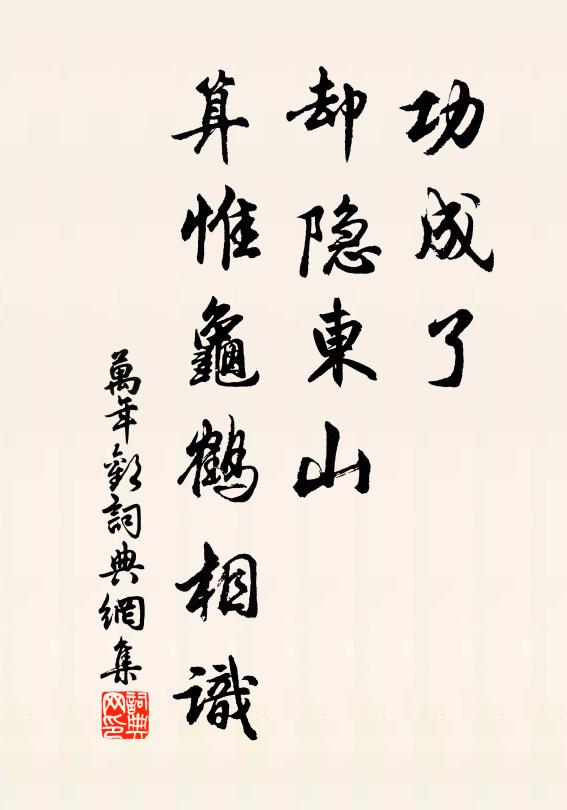 功成了
却隐東山
算惟龜鶴相識
萬年歡詞典網集
詞典網印